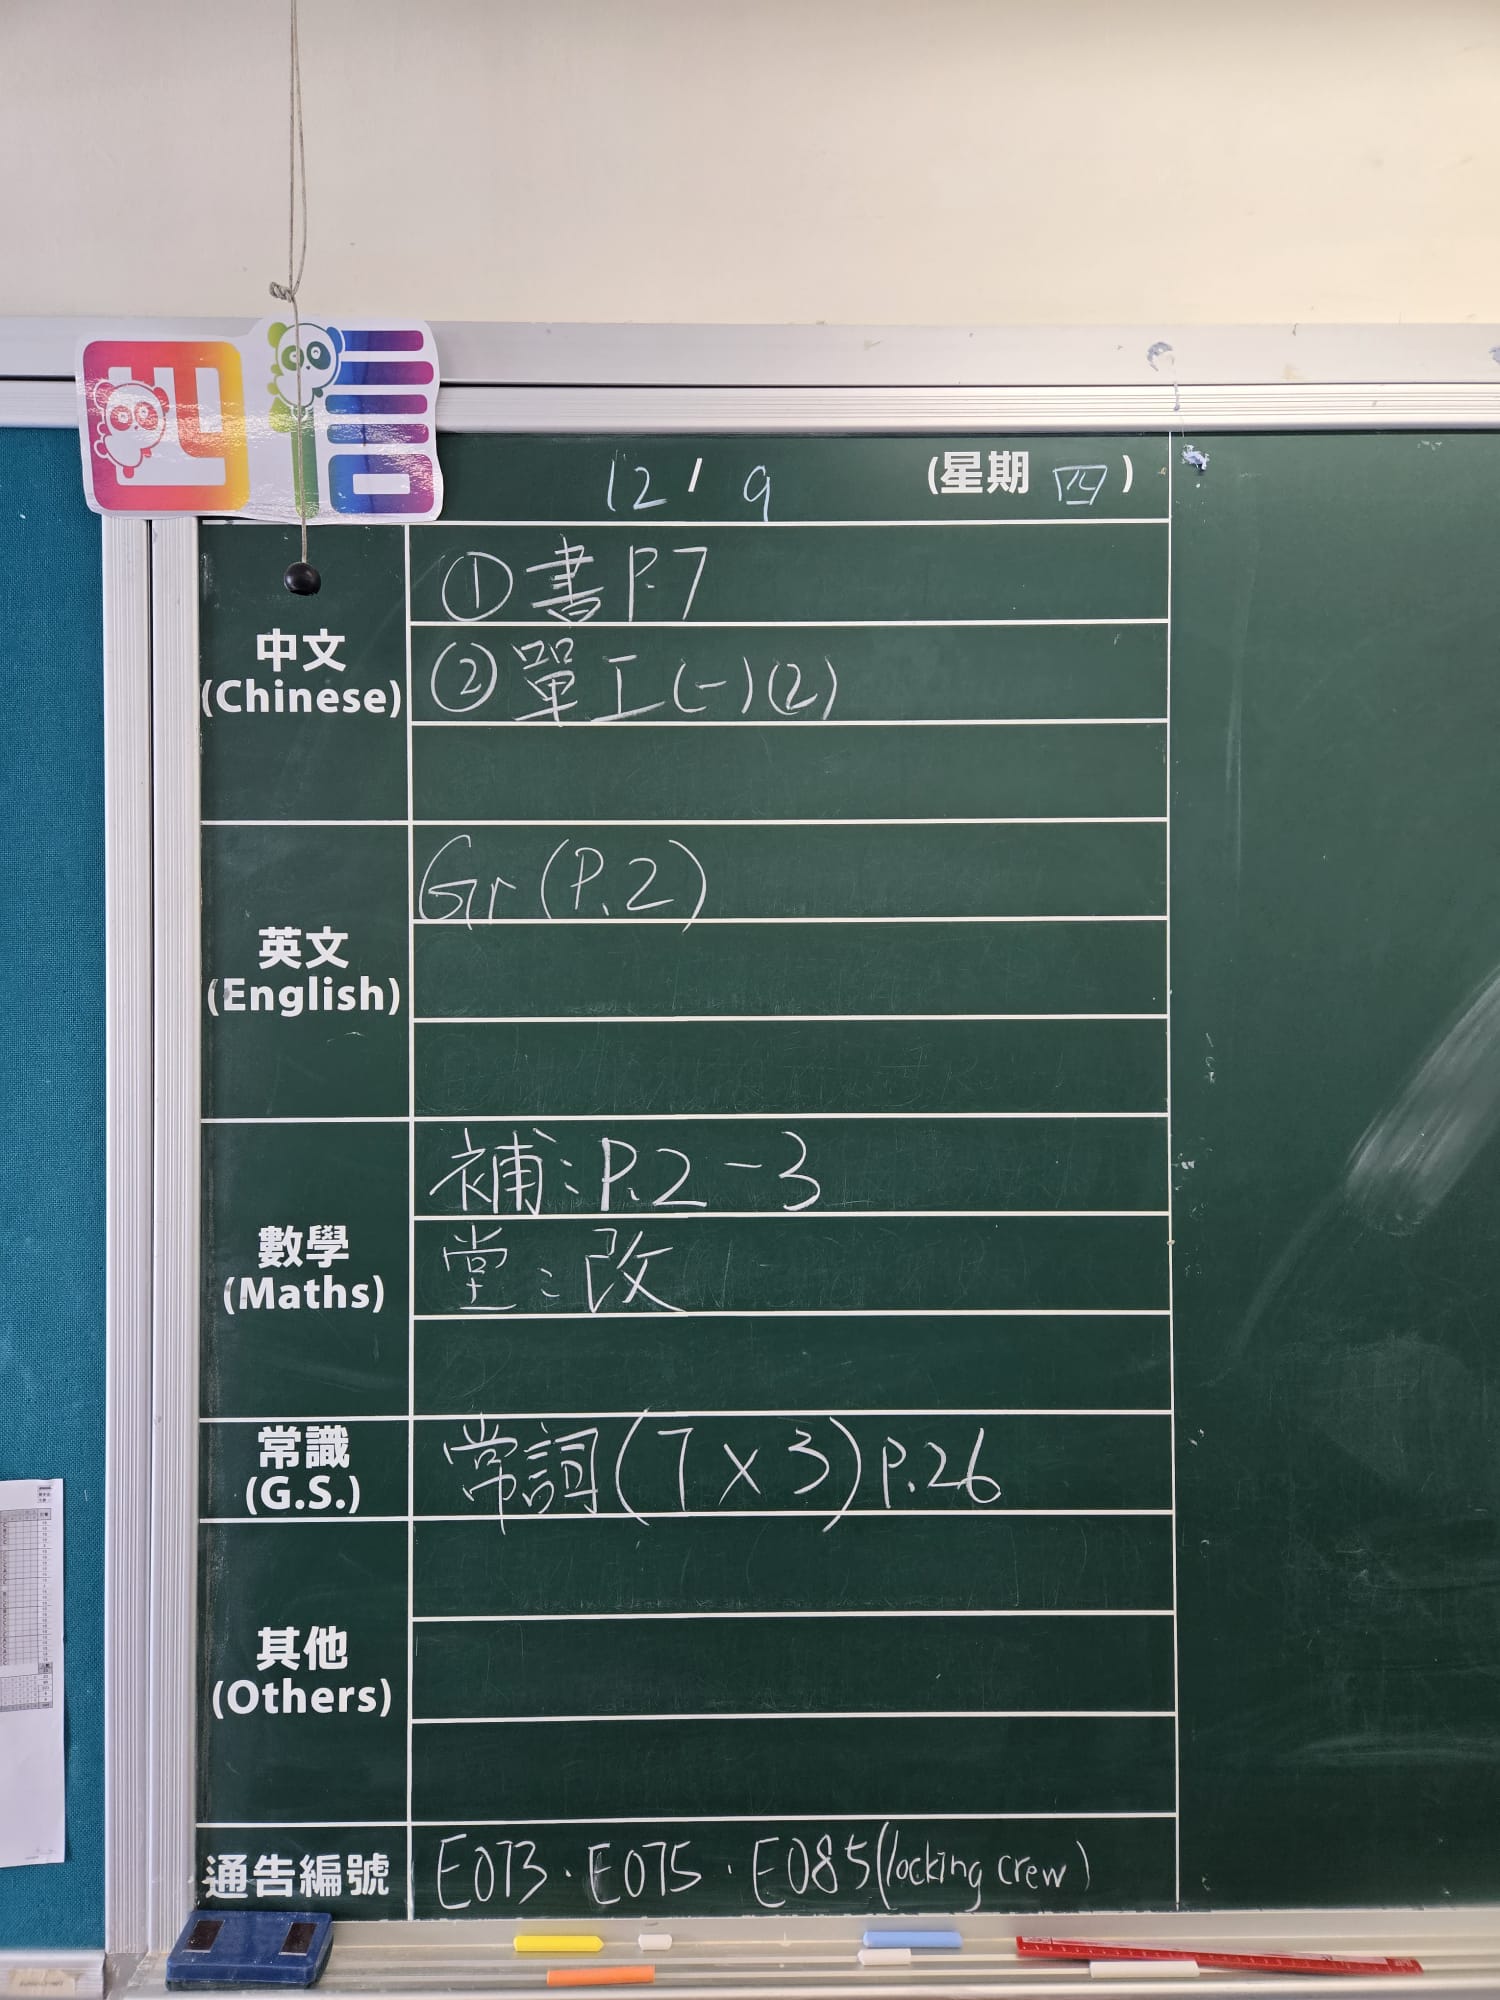 四信
12 / 9 (星期 四)
中文
(Chinese)
①書P.7
②單工(一)(2)
英文
(English)
Gr (P.2)
數學
(Maths)
補：P.2-3
堂：改
常識
(G.S.)
常詞(7×3)P.26
其他
(Others)
通告編號
E073．E075．E085(locking crew)